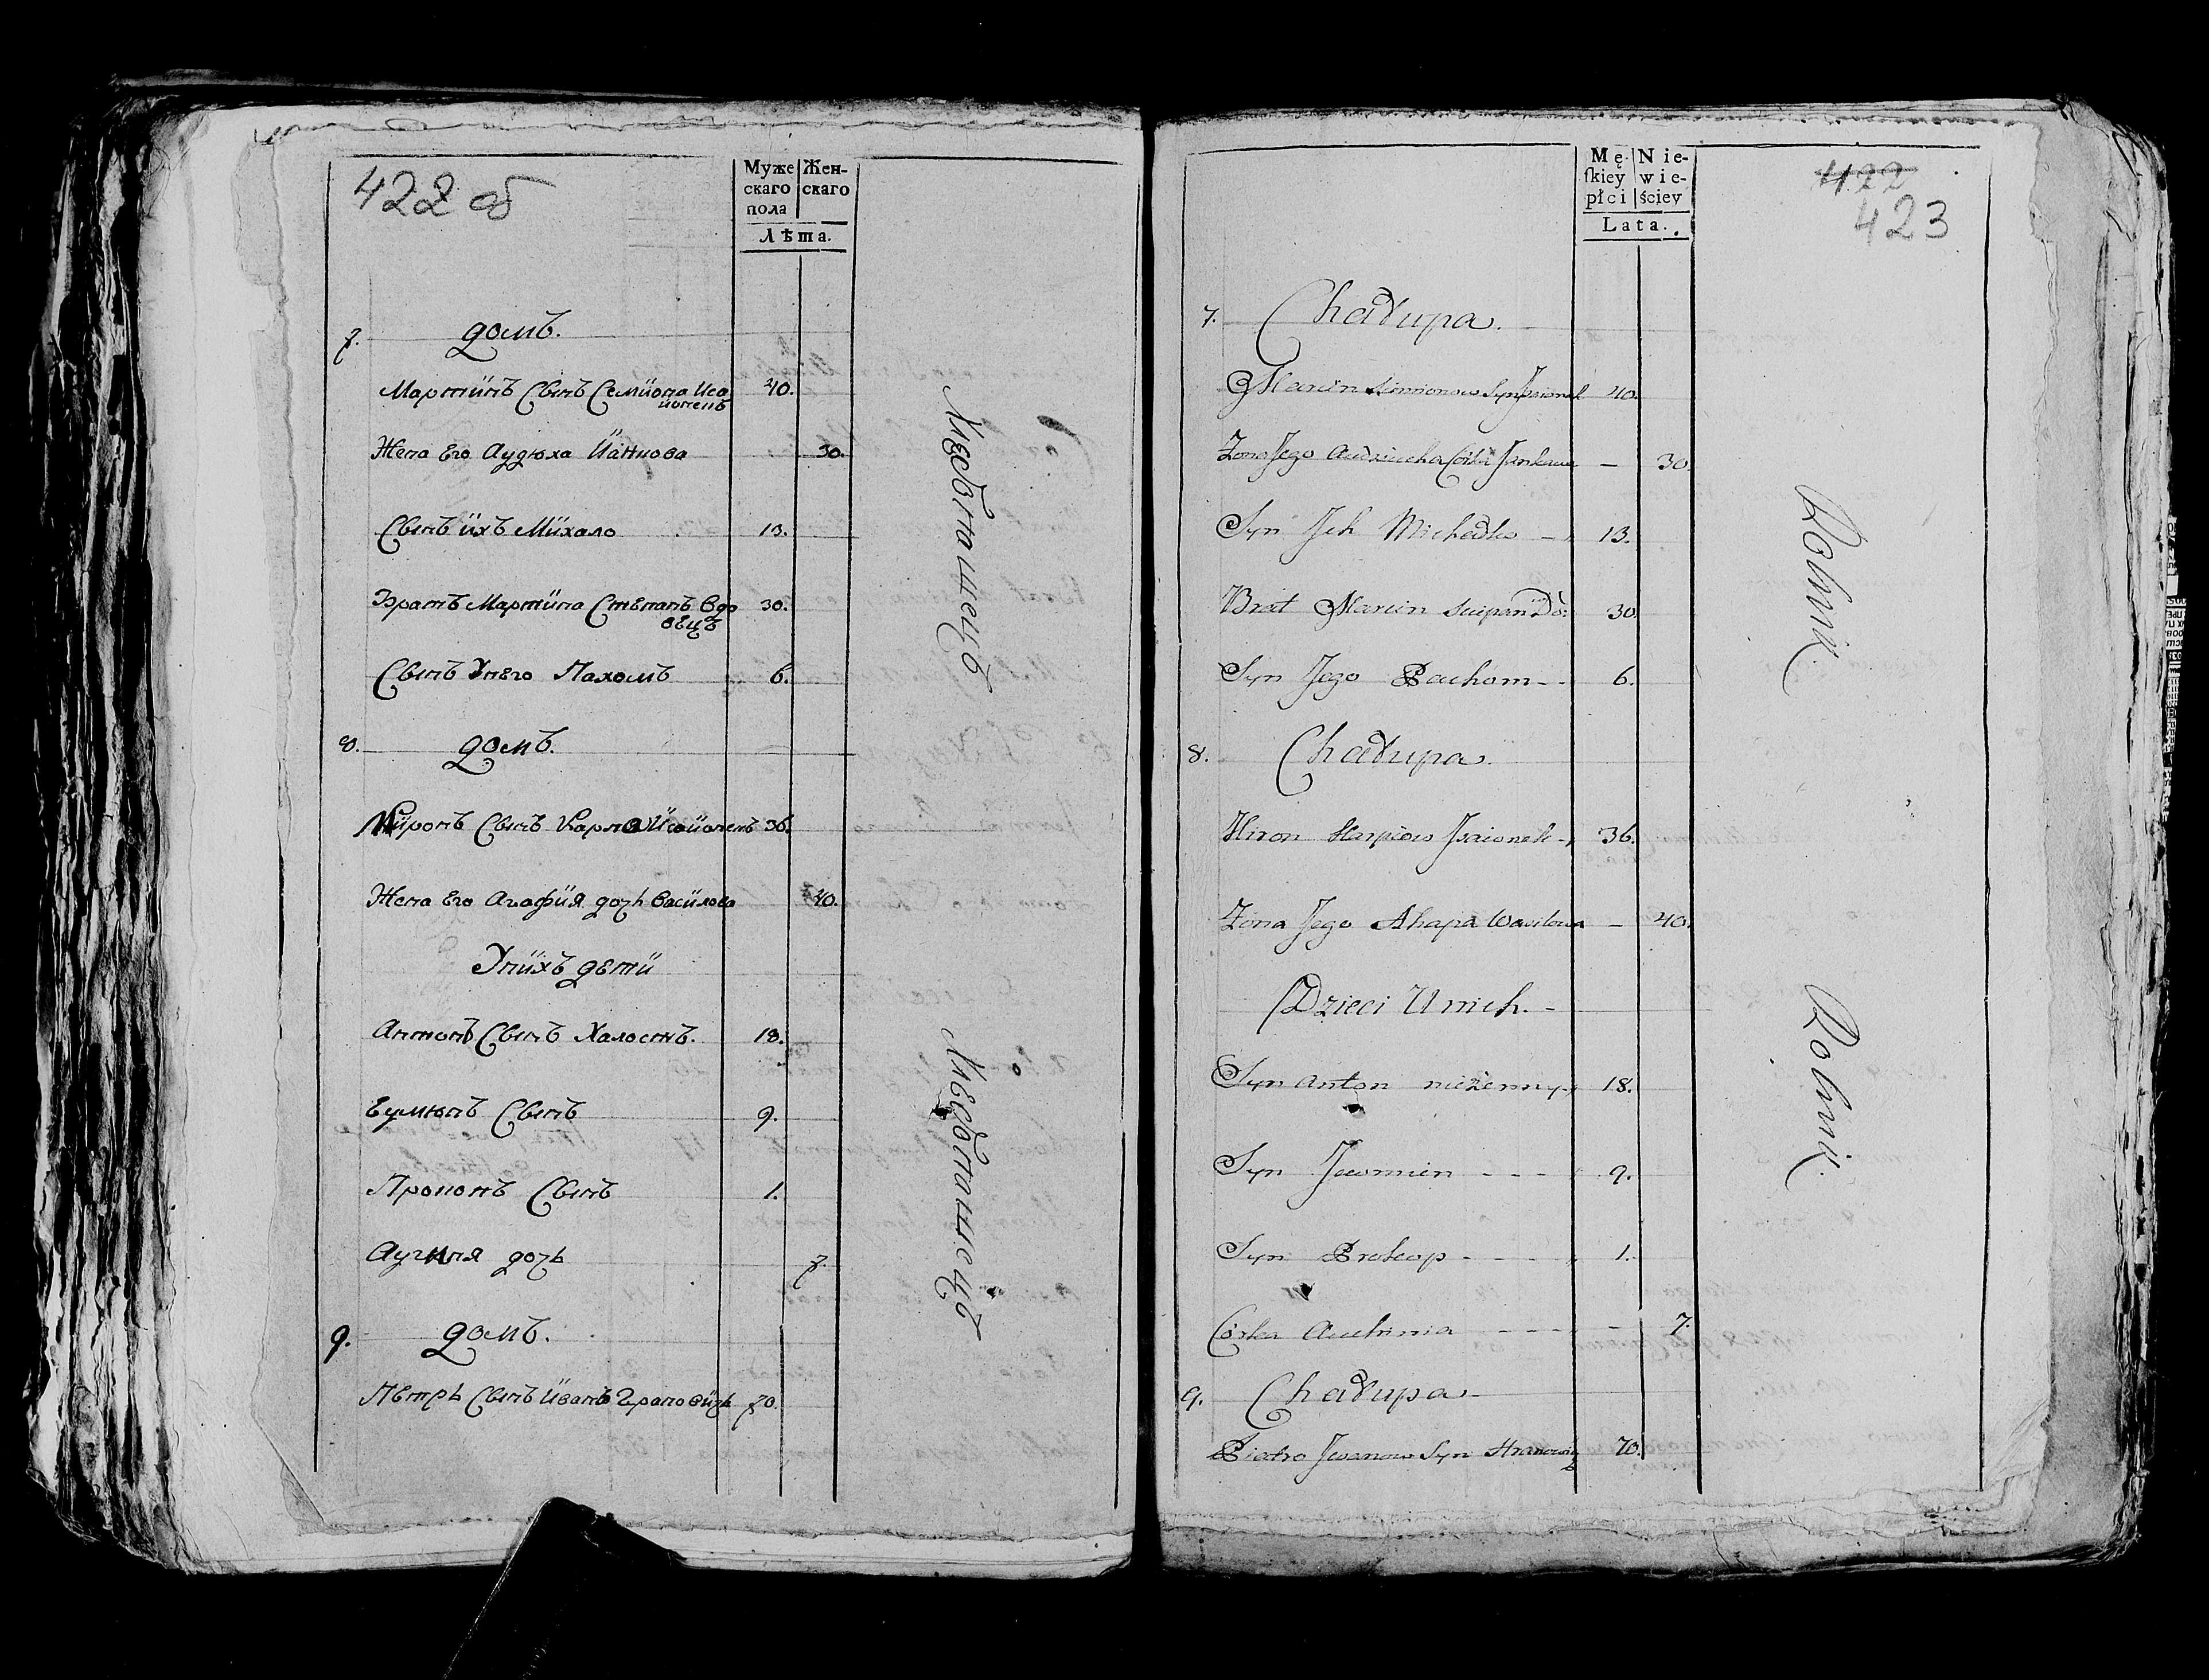 422 об
Муже
скаго
пола
Жен-
скаго
Лѣта.
7. домъ.
Мартинъ Сынъ Семиона Иса
ионенъ 40.
Жена Его Аудюха Йанкова 30.
Сынъ ихъ Михало 13.
Братъ Мартина Степанъ Вдо
вецъ 30.
Сынъ Унего Пахомъ 6.
8. домъ.
Миронъ Сынъ Карпа Исаионенъ 36.
Жена Его Агафия дочь Василева 40.
Унихъ дети
Антонъ Сынъ Халостъ. 18.
Еумюнъ Сынъ 9.
Прокопъ Сынъ 1.
Аугиня дочь 7.
9. домъ.
Петръ Сынъ Иванъ Грановичь 70.
Męſkiey
płci
Niewieściey
Lata.
422
423
7. Chałupa.
Marcin Simionow Syn Jsaionek 40.
Żona Jego Audziucha Córka Jankowa — 30.
Syn Jch Michałko — 13.
Brat Marcin Sciepan Wdo: 30.
Syn Jego Pachom - - 6.
Rolnik.
8. Chałupa.
Miron Karpiow Jsaionek - 36.
Żona Jego Ahapa Wasilowa — 40.
Dzieci Unich. -
Syn Anton nieżenny - 18.
Syn Jaumien - - - 9.
Syn Prokop - - - 1.
Córka Auhinia - - - - 7.
Rolnik.
9. Chałupa -
Piotro Jwanow Syn Hranowicz 70.